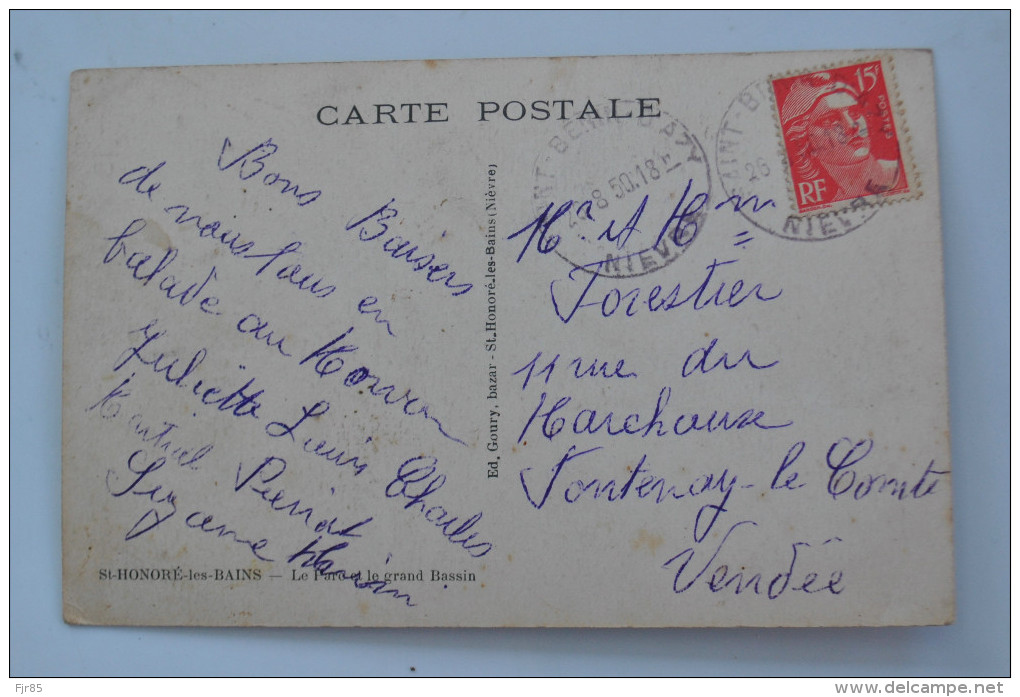 CARTE POSTALE
Bons Baisers
de nous tous en
balade au Morvan
Juliette Louis Charles
Martial Pierrot
Suzanne
St-HONORÉ-les-BAINS — Le Parc et le grand Bassin
Ed. Goury, bazar - St-Honoré-les-Bains (Nièvre)
15F
POSTES
RF
NIÈVRE
8-50.18H
SAINT-BE
26
NIÈVRE
Mr et Mme
Forestier
11 rue du
Marchoux
Fontenay-le Comte
Vendée
Fjr85
www.delcampe.net